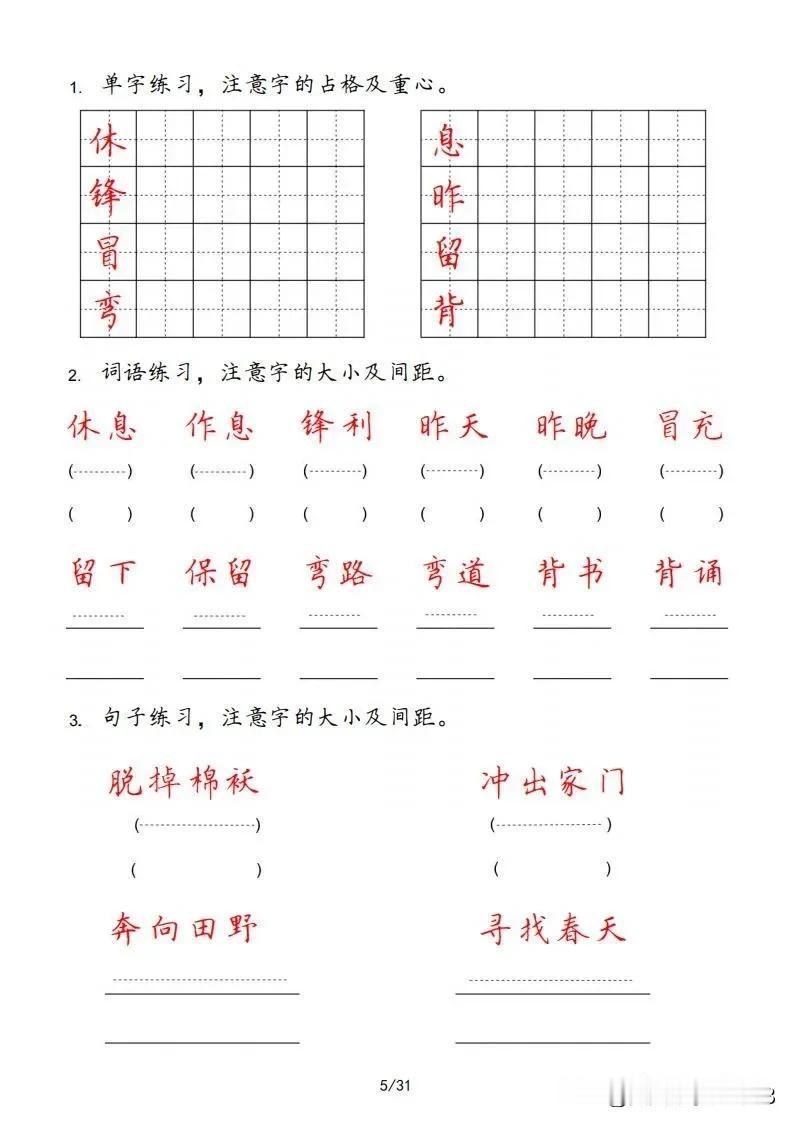 1. 单字练习，注意字的占格及重心。
休 息
锋 昨
冒 留
弯 背
2. 词语练习，注意字的大小及间距。
休息 作息 锋利 昨天 昨晚 冒充
( ) ( ) ( ) ( ) ( ) ( )
( ) ( ) ( ) ( ) ( ) ( )
留下 保留 弯路 弯道 背书 背诵
3. 句子练习，注意字的大小及间距。
脱掉棉袄 冲出家门
( ) ( )
( ) ( )
奔向田野 寻找春天
5/31